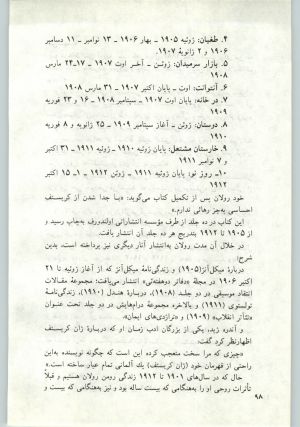 ۴. طغیان: ژوئیه ۱۹۰۵ - بهار ۱۹۰۶ - ۱۳ نوامبر - ۱۱ دسامبر
۱۹۰۶ و ۲ ژانویهٔ ۱۹۰۷.
۵. بازار سرمیدان: ژوئن - آخر اوت ۱۹۰۷ - ۱۷-۲۴ مارس
۱۹۰۸
۶. آنتوانت: اوت - پایان اکتبر ۱۹۰۷ - ۳۱ مارس ۱۹۰۸
۷. در خانه: پایان اوت ۱۹۰۷ - سپتامبر ۱۹۰۸ - ۱۶ و ۲۳ فوریه
۱۹۰۹
۸. دوستان: ژوئن - آغاز سپتامبر ۱۹۰۹ - ۲۵ ژانویه و ۸ فوریه
۱۹۱۰
۹. خارستان مشتعل: پایان ژوئیه ۱۹۱۰ - ژوئیه ۱۹۱۱ - ۳۱ اکتبر
و ۷ نوامبر ۱۹۱۱
۱۰- روز نو: پایان ژوئیه ۱۹۱۱ - ژوئن ۱۹۱۲ - ۱-۱۵ اکتبر
۱۹۱۲
خود رولان پس از تکمیل کتاب می‌گوید: «با جدا شدن از کریستف
احساسی به‌جز رهائی ندارم.»
این کتاب در ده جلد از طرف مؤسسه انتشاراتی اولندورف به‌چاپ رسید و
از ۱۹۰۵ تا ۱۹۱۲ بتدریج هر ده جلد آن انتشار یافت.
در خلال آن مدت رولان به‌انتشار آثار دیگری نیز پرداخته است. بدین
شرح:
دربارهٔ میکل‌آنژ (۱۹۰۵) و زندگی‌نامهٔ میکل‌آنژ که از آغاز ژوئیه تا ۲۱
اکتبر ۱۹۰۶ در مجلهٔ «دفاتر دوهفتئی» انتشار می‌یافت؛ مجموعهٔ مقالات
انتقاد موسیقی در دو جلد (۱۹۰۸)، دربارهٔ هندل (۱۹۱۰)، زندگی‌نامهٔ
تولستوی (۱۹۱۱) و بالاخره مجموعهٔ درام‌هایش در دو جلد تحت عنوان
«تئاتر انقلاب» (۱۹۰۹) و «تراژدی‌های ایمان».
و آندره ژید، یکی از بزرگان ادب زمان او که دربارهٔ ژان کریستف
اظهارنظر کرد گفت:
«چیزی که مرا سخت متعجب کرده این است که چگونه نویسنده به‌این
راحتی از قهرمان خود (ژان کریستف) یک آلمانی تمام عیار ساخته است.»
حال که در سال‌های ۱۹۰۱ تا ۱۹۱۲ زندگی رومن رولان هستیم و قبلاً
تأثرات روحی او را به‌هنگامی که بیست ساله بود و نیز به‌هنگامی که بیست و
۹۸